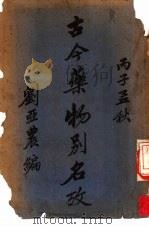 丙子孟秋
古今藥物別名攷
劉亞農編